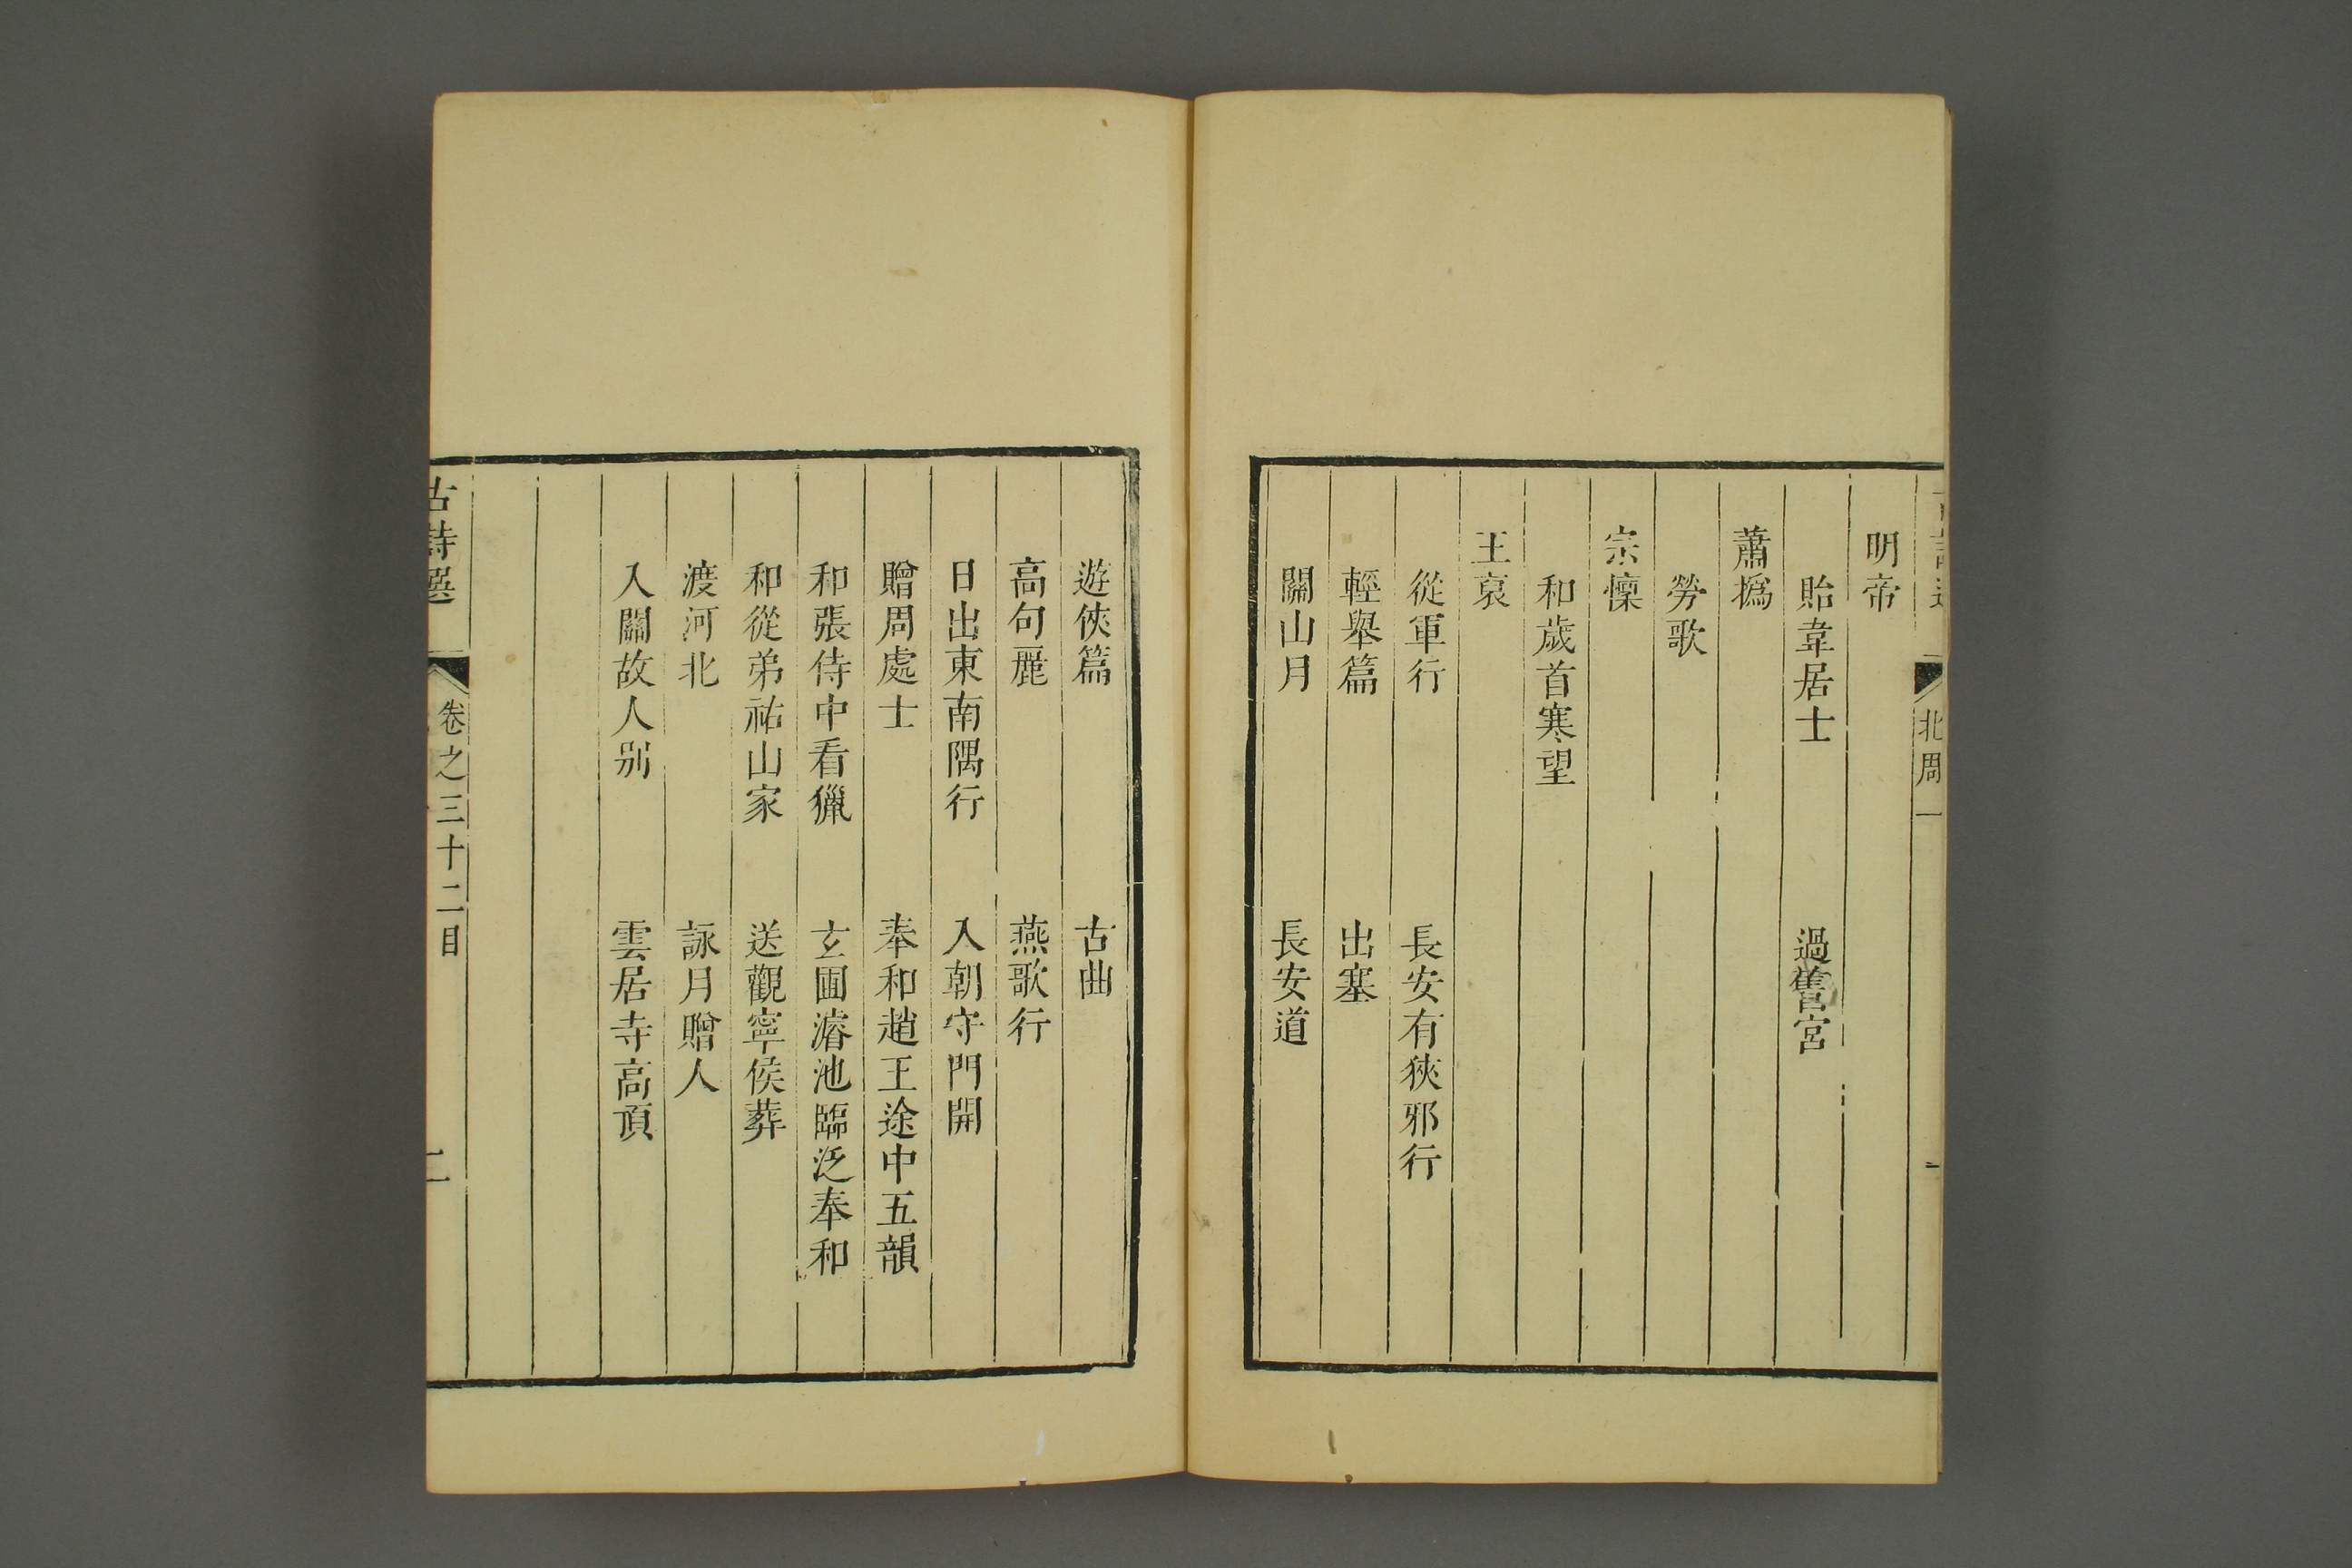 北周一
明帝
貽韋居士　過舊宮
蕭撝
勞歌
宗懍
和歲首寒望
王裒
從軍行　長安有狹邪行
輕舉篇　出塞
關山月　長安道
遊俠篇　古曲
高句麗　燕歌行
日出東南隅行　入朝守門開
贈周處士　奉和趙王途中五韻
和張侍中看獵　玄圃濬池臨泛奉和
和從弟祐山家　送觀寧侯葬
渡河北　詠月贈人
入關故人別　雲居寺高頂
古詩選　卷之三十二目　二